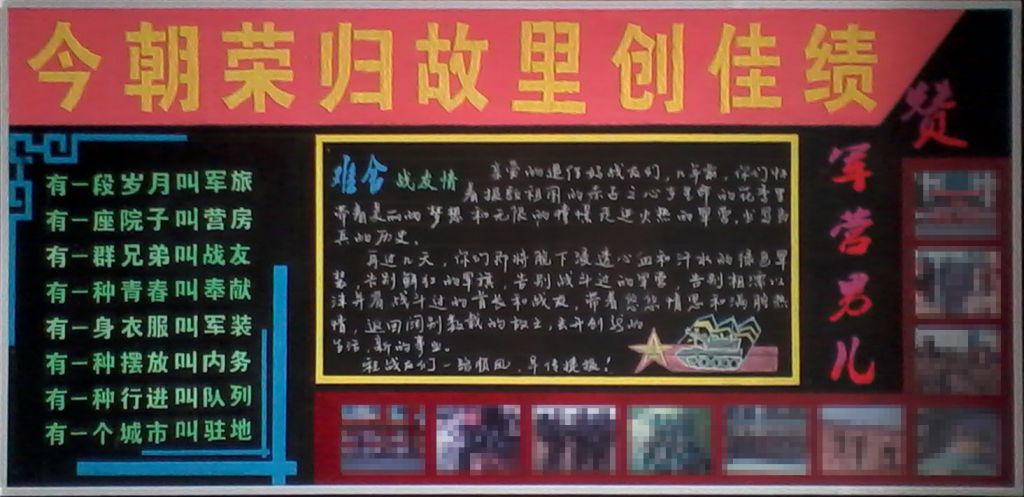 今朝荣归故里创佳绩
有一段岁月叫军旅
有一座院子叫营房
有一群兄弟叫战友
有一种青春叫奉献
有一身衣服叫军装
有一种摆放叫内务
有一种行进叫队列
有一个城市叫驻地
难舍 战友情
亲爱的退伍好战友们,几年前,你们怀
着报效祖国的赤子之心于生命的花季里
带着美丽的梦想和无限的憧憬走进火热的军营,
的历史。
再过几天,你们即将脱下浸透心血和汗水的绿色军
装,告别鲜红的军旗,告别战斗过的军营 告别相濡以
沫并肩战斗过的首长和战友,带着悠悠情思和满腔热
情,返回阔别数载的故土,去开创
生活、新的事业。
祝战友们一路顺风,早传捷报!
赞
军营男儿